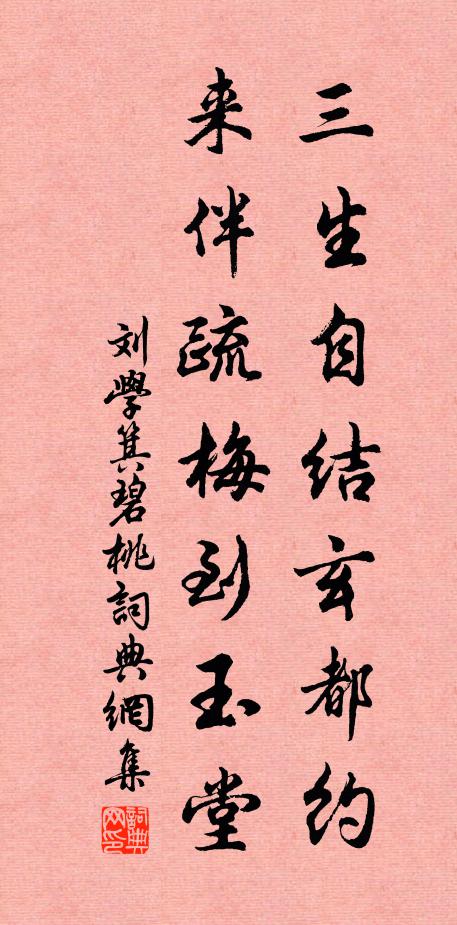 三生自结玄都约
来伴疏梅到玉堂
刘学箕碧桃词典網集
詞典网印